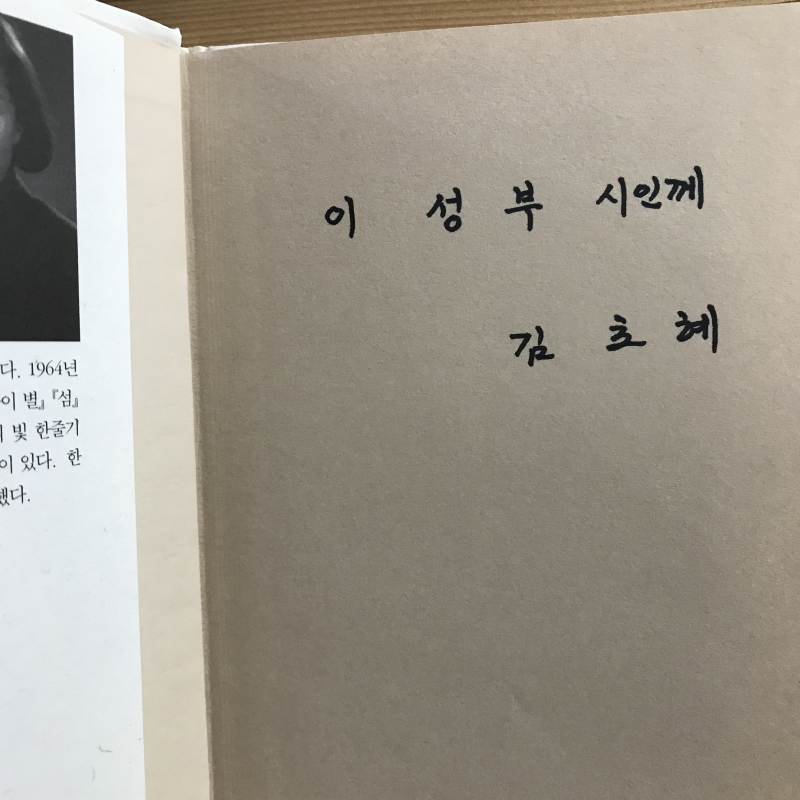 다. 1964년
이 별』 『섬』
빛 한줄기
이 있다. 한
했다.
이 성 부 시인께
김 초 혜